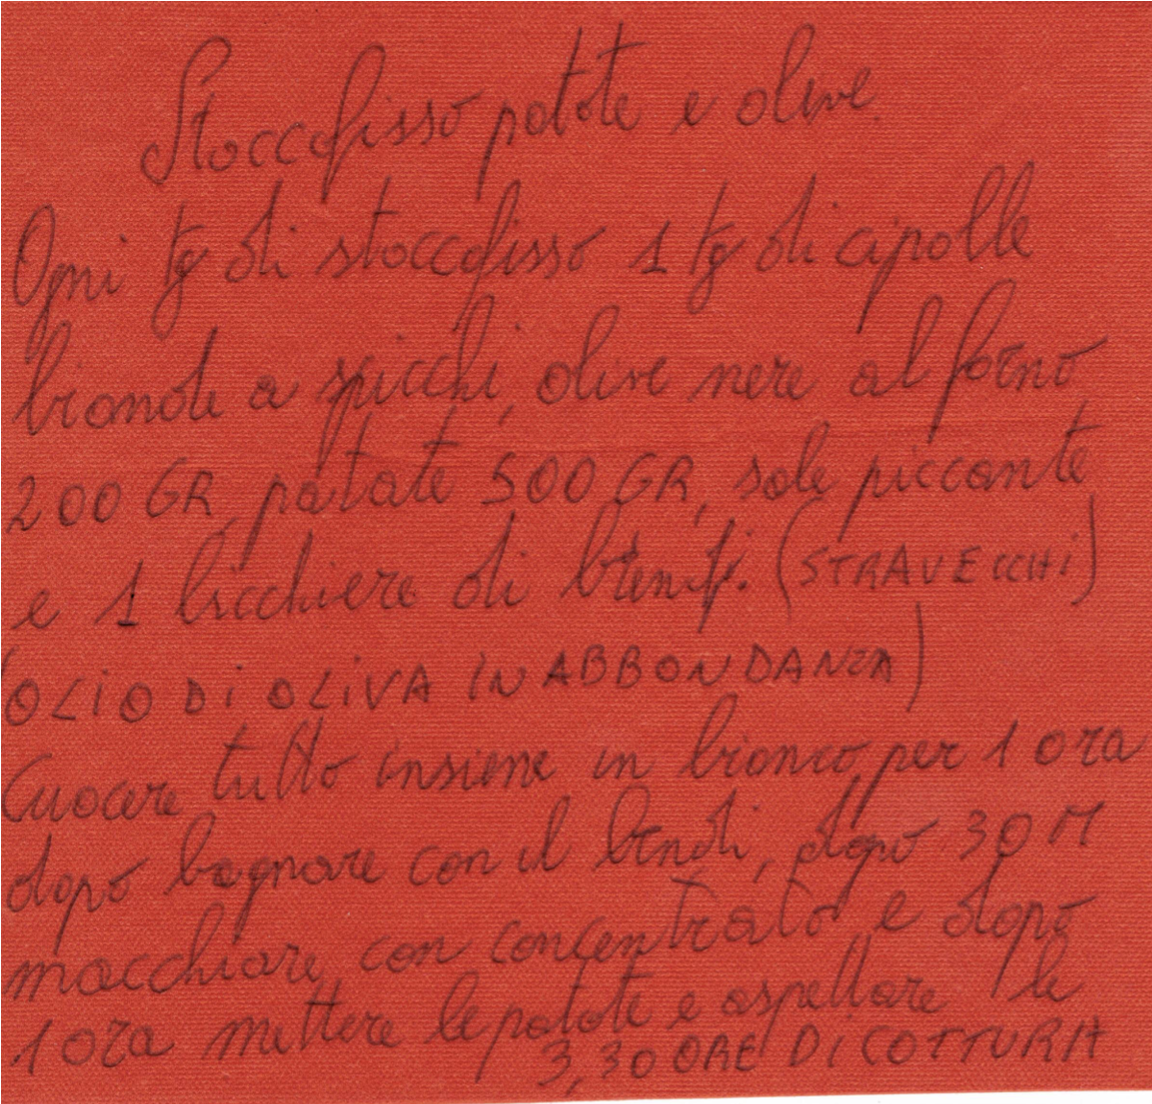 Stoccafisso patate e olive.
Ogni kg di stoccafisso 1 kg di cipolle
bionde a spicchi, olive nere al forno
200 GR, patate 500 GR, sale piccante
e 1 bicchiere di (STRAVECCHI)
(OLIO DI OLIVA IN ABBONDANZA)
Cuocere tutto insieme in bianco, per 1 ora
dopo bagnare con il, dopo 30 M
macchiare con concentrato e dopo
1 ora mettere le patate e aspettare le
3,30 ORE DI COTTURA